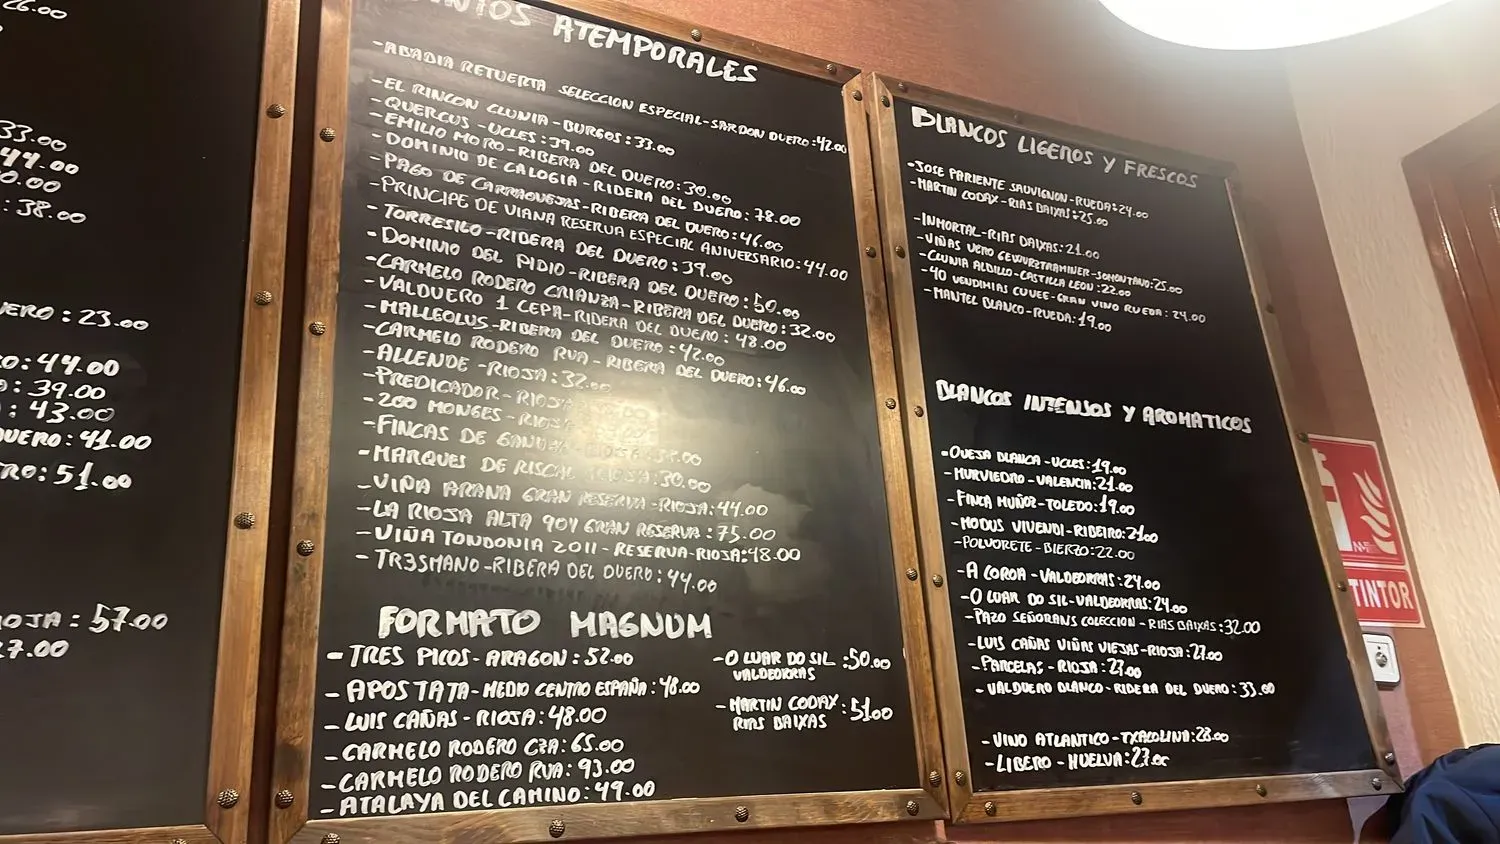 26.00
33.00
44.00
0.00
: 38.00
ERO: 23.00
O: 44.00
: 39.00
: 43.00
UERO: 41.00
RO: 51.00
OJA: 57.00
7.00
ATEMPORALES
-ABADIA RETUERTA SELECCION ESPECIAL-SARDON DUERO:42.00
-EL RINCON CLUNIA-BURGOS:33.00
-QUERCUS-UCLES:39.00
-EMILIO MORO-RIBERA DEL DUERO:30.00
-DOMINIO DE CALOGIA-RIBERA DEL DUERO:78.00
-PAGO DE CARRAOVEJAS-RIBERA DEL DUERO:46.00
-PRINCIPE DE VIANA RESERVA ESPECIAL ANIVERSARIO:44.00
-TORRESILO-RIBERA DEL DUERO:39.00
-DOMINIO DEL PIDIO-RIBERA DEL DUERO:50.00
-CARMELO RODERO CRIANZA-RIBERA DEL DUERO:32.00
-VALDUERO 1 CEPA-RIBERA DEL DUERO:48.00
-MALLEOLUS-RIBERA DEL DUERO:42.00
-CARMELO RODERO RVA-RIBERA DEL DUERO:46.00
-ALLENDE-RIOJA:32.00
-PREDICADOR-RIOJA
-200 MONGES-RIOJA
-FINCAS DE
-MARQUES DE RISCAL RIOJA:30.00
-VIÑA ARANA GRAN RESERVA-RIOJA:44.00
-LA RIOJA ALTA 904 GRAN RESERVA:75.00
-VIÑA TONDONIA 2011-RESERVA-RIOJA:48.00
-TR3SMANO-RIBERA DEL DUERO:44.00
FORMATO MAGNUM
-TRES PICOS-ARAGON:52.00
-APOSTATA-MEDIO CENTRO ESPAÑA:48.00
-LUIS CAÑAS-RIOJA:48.00
-CARMELO RODERO CZA:65.00
-CARMELO RODERO RVA:93.00
-ATALAYA DEL CAMINO:49.00
-O LUAR DO SIL :50.00
VALDEORRAS
-MARTIN CODAX :51.00
RIAS BAIXAS
BLANCOS LIGEROS Y FRESCOS
-JOSE PARIENTE SAUVIGNON-RUEDA:24.00
-MARTIN CODAX-RIAS BAIXAS:25.00
-INMORTAL-RIAS BAIXAS:21.00
-VIÑAS VERO GEWURZTRAMINER-SOMONTANO:25.00
-CLUNIA ALBILLO-CASTILLA LEON:22.00
-40 VENDIMIAS CUVEE-GRAN VINO RUEDA:24.00
-MANTEL BLANCO-RUEDA:19.00
BLANCOS INTENSOS Y AROMATICOS
-OVEJA BLANCA-UCLES:19.00
-MURVIEDRO-VALENCIA:21.00
-FINCA MUÑOZ-TOLEDO:19.00
-MODUS VIVENDI-RIBEIRO:21.00
-POLVORETE-BIERZO:22.00
-A COROA-VALDEORRAS:24.00
-O LUAR DO SIL-VALDEORRAS:24.00
-PAZO SEÑORANS COLECCION-RIAS BAIXAS:32.00
-LUIS CAÑAS VIÑAS VIEJAS-RIOJA:27.00
-PARCELAS-RIOJA:27.00
-VALDUERO BLANCO-RIBERA DEL DUERO:33.00
-VINO ATLANTICO-TXACOLINA:28.00
-LIBERO-HUELVA:27.00
TINTOR